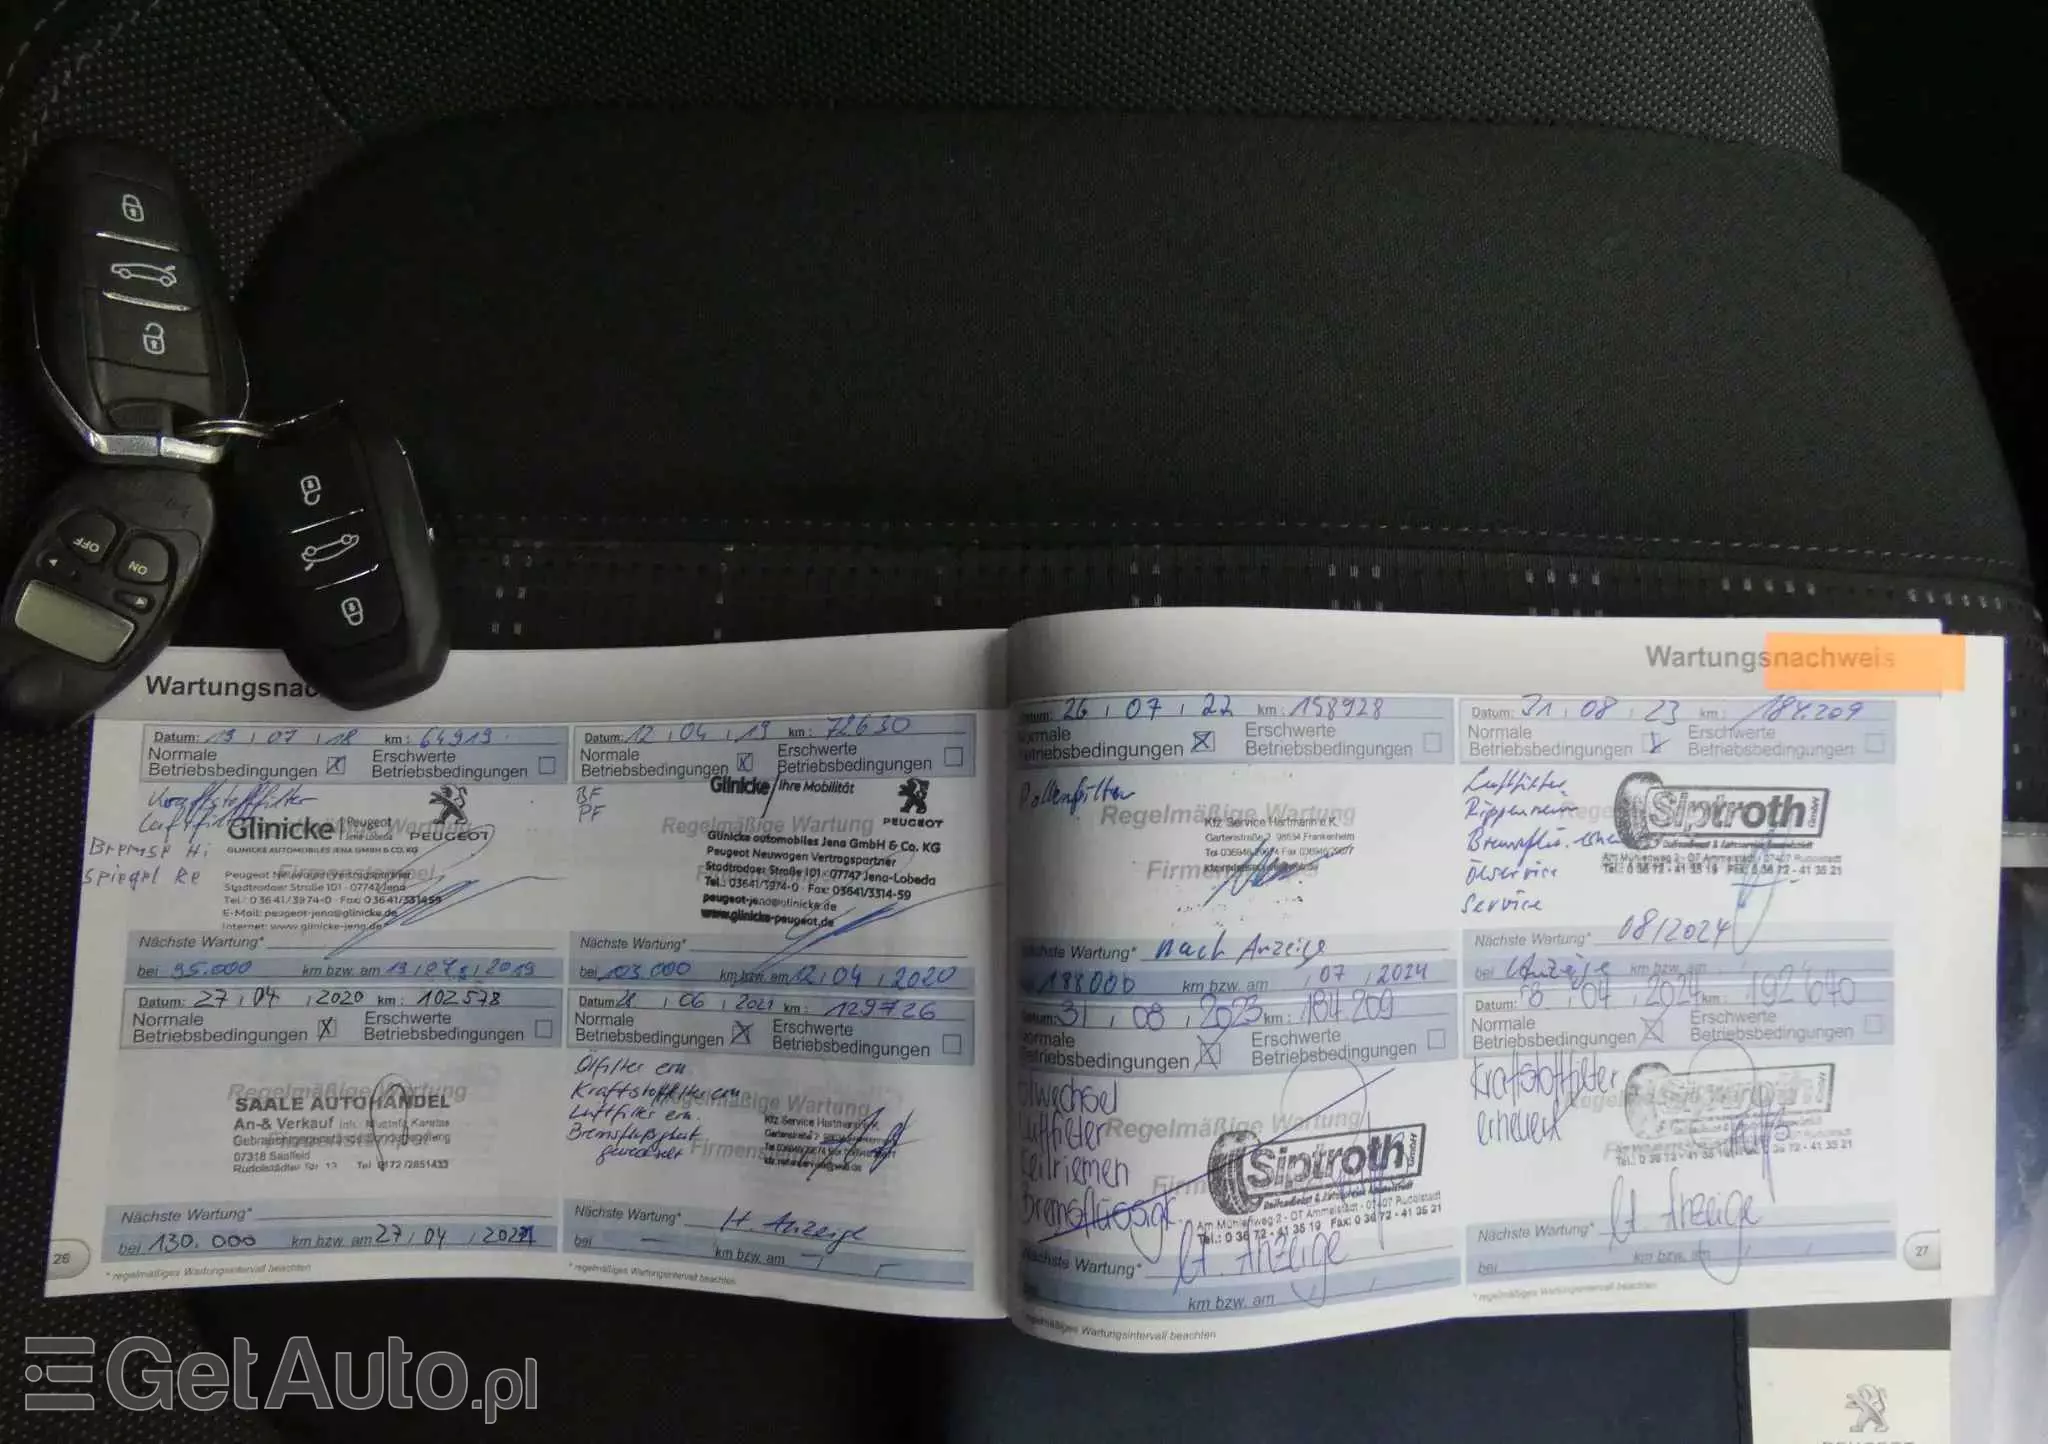 OFF
ON
Wartungsnac
Datum: 19 07 18 km: 64919
Normale Betriebsbedingungen
Erschwerte Betriebsbedingungen
Kraftstofffilter
Luftfilter
Bremse Hi
Spiegel Re
Glinicke Peugeot
Jena-Lobeda
PEUGEOT
GLINICKE AUTOMOBILES JENA GMBH & CO. KG
Peugeot Neuwagen Vertragspartner
Stadtrodaer Straße 101 · 07747 Jena
Tel.: 0 36 41/39 74-0 · Fax: 0 36 41/33 14 59
E-Mail: peugeot-jena@glinicke.de
Internet: www.glinicke-jena.de
Nächste Wartung*
bei 95.000 km bzw. am 2019
Datum: 12 04 19 km: 72630
Normale Betriebsbedingungen
Erschwerte Betriebsbedingungen
BF
PF
Glinicke Ihre Mobilität
PEUGEOT
Regelmäßige Wartung
Glinicke automobiles Jena GmbH & Co. KG
Peugeot Neuwagen Vertragspartner
Stadtrodaer Straße 101 · 07747 Jena-Lobeda
Tel.: 03641/3974-0 Fax: 03641/3314-59
peugeot-jena@glinicke.de
www.glinicke-peugeot.de
Nächste Wartung*
bei 103.000 km bzw. am 12 04 2020
Datum: 27 04 2020 km: 102578
Normale Betriebsbedingungen
Erschwerte Betriebsbedingungen
Regelmäßige Wartung
SAALE AUTOHANDEL
An-& Verkauf
07318 Saalfeld
Rudolstädter Str. Tel. 0172/2851433
Nächste Wartung*
bei 130.000 km bzw. am 27 04
* regelmäßiges Wartungsintervall beachten
26
Datum: 06 2021 km: 129726
Normale Betriebsbedingungen
Erschwerte Betriebsbedingungen
Ölfilter ern.
Kraftstofffilter ern
Luftfilter ern.
Bremsflüssigkeit
gewechselt
Regelmäßige Wartung
Kfz Service Hartmann e.K.
Nächste Wartung* lt. Anzeige
bei — km bzw. am
* regelmäßiges Wartungsintervall beachten
Wartungsnachweis
Datum: 26 07 22 km: 158928
Normale Betriebsbedingungen
Erschwerte Betriebsbedingungen
Pollenfilter
Regelmäßige Wartung
Kfz Service Hartmann e.K.
Gartenstraße 2 98634 Frankenheim
Nächste Wartung* nach Anzeige
188000 km bzw. am 07 2024
Datum: 31 08 23 km: 184.209
Normale Betriebsbedingungen
Erschwerte Betriebsbedingungen
Luftfilter
Rippenriemen
Ölservice
Service
Siptroth GmbH
Am Mühlenweg 2 - OT Ammelstädt - 07407 Rudolstadt
Tel.: 0 36 72 - 41 35 19 Fax: 0 36 72 - 41 35 21
Nächste Wartung* 08/2024
bei Anzeige km bzw. am
Datum: 31 08 2023 km: 184 209
Normale Betriebsbedingungen
Erschwerte Betriebsbedingungen
Ölwechsel
Luftfilter
Keilriemen
Bremsflüssigk
Regelmäßige Wartung
Siptroth GmbH
Reifendienst & Fahrservice Ammelstädt
Am Mühlenweg 2 - OT Ammelstädt - 07407 Rudolstadt
Tel.: 0 36 72 - 41 35 19 Fax: 0 36 72 - 41 35 21
Nächste Wartung* lt. Anzeige
km bzw. am
regelmäßiges Wartungsintervall beachten
Datum: 8 04 2024 km: 192640
Normale Betriebsbedingungen
Erschwerte Betriebsbedingungen
Kraftstofffilter
erneuert
Nächste Wartung* lt. Anzeige
bei km bzw. am
* regelmäßiges Wartungsintervall beachten
27
GetAuto.pl